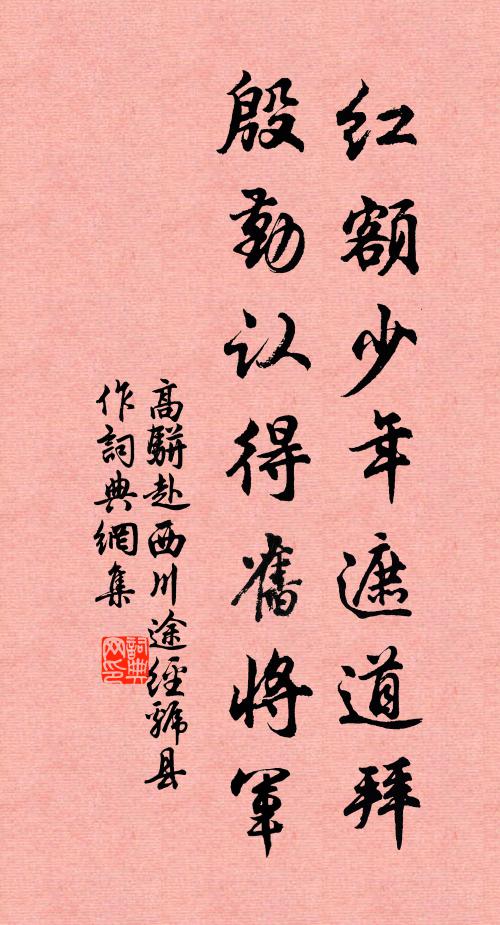 红额少年遮道拜
殷勤认得旧將軍
高駢赴西川途經虢县
作詞典網集
詞典
网印